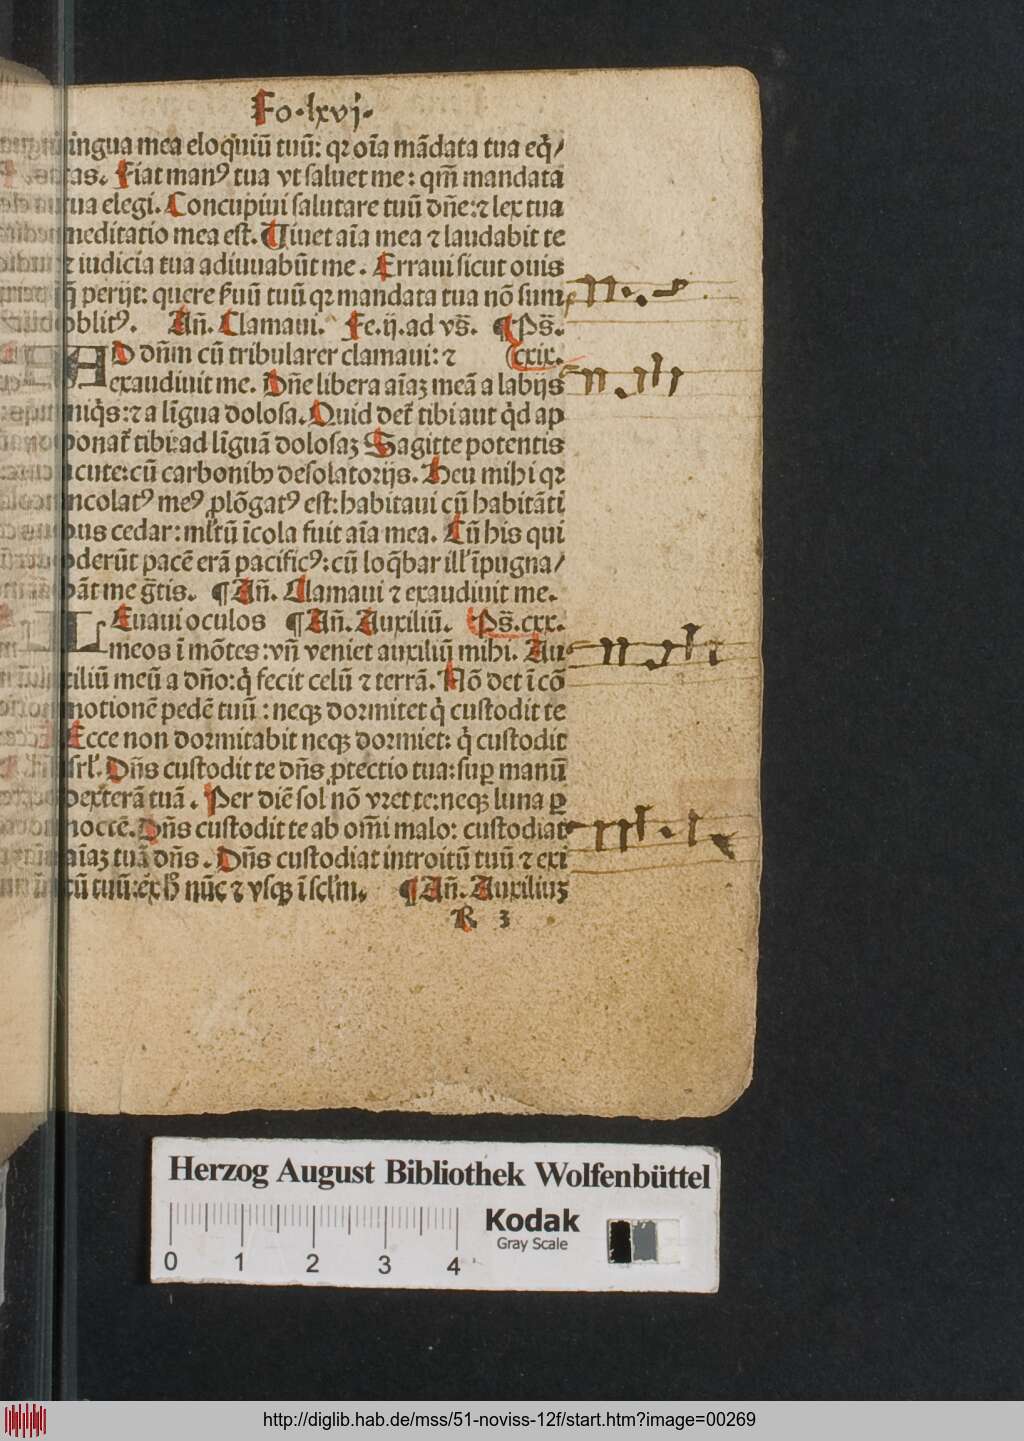 Fo. lxvj.
lingua mea eloquiũ tuũ: qꝛ oĩa mãdata tua eq̇/
tas. Fiat manꝰ tua vt saluet me: qm̃ mandata
tua elegi. Concupiui salutare tuũ dñe: ⁊ lex tua
meditatio mea est. Uiuet aĩa mea ⁊ laudabit te
⁊ iudicia tua adiuuabũt me. Erraui sicut ouis
q̃ perijt: quere ẜuũ tuũ qꝛ mandata tua nõ sum
oblitꝰ. Añ. Clamaui. Fe.ij.ad vs̃. ¶ Ps̃.
AD dñm cũ tribularer clamaui: ⁊ cxix.
exaudiuit me. Dñe libera aĩaꝫ meã a labijs
iniq̇s: ⁊ a lĩgua dolosa. Quid det̃ tibi aut q̇d ap
ponat̃ tibi: ad lĩguã dolosaꝫ Sagitte potentis
acute: cũ carbonibꝰ desolatorijs. Heu mihi qꝛ
incolatꝰ meꝰ ꝓlõgatꝰ est: habitaui cũ habitãti
bus cedar: ml̃tũ ĩcola fuit aĩa mea. Cũ his qui
oderũt pacẽ erã pacificꝰ: cũ loq̃bar ill' ĩpugna/
bãt me g̃tis. ¶ Añ. Clamaui ⁊ exaudiuit me.
LEuaui oculos ¶ Añ. Auxiliũ. Ps̃. cxx.
meos ĩ mõtes: vñ veniet auxiliũ mihi. Au
xiliũ meũ a dño: q̇ fecit celũ ⁊ terrã. Nõ det ĩ cõ
motionẽ pedẽ tuũ: neqꝫ dormitet q̇ custodit te
Ecce non dormitabit neqꝫ dormiet: q̇ custodit
isrl'. Dñs custodit te dñs ꝓtectio tua: suꝑ manũ
dexterã tuã. Per diẽ sol nõ vret te: neqꝫ luna ꝑ
noctẽ. Dñs custodit te ab om̃i malo: custodiat
aĩaꝫ tuã dñs. Dñs custodiat introitũ tuũ ⁊ exi
tũ tuũ: ex h̃ nũc ⁊ vsqꝫ ĩ scl'm. ¶ Añ. Auxiliuꝫ
R 3
Herzog August Bibliothek Wolfenbüttel
Kodak
Gray Scale
0 1 2 3 4
http://diglib.hab.de/mss/51-noviss-12f/start.htm?image=00269